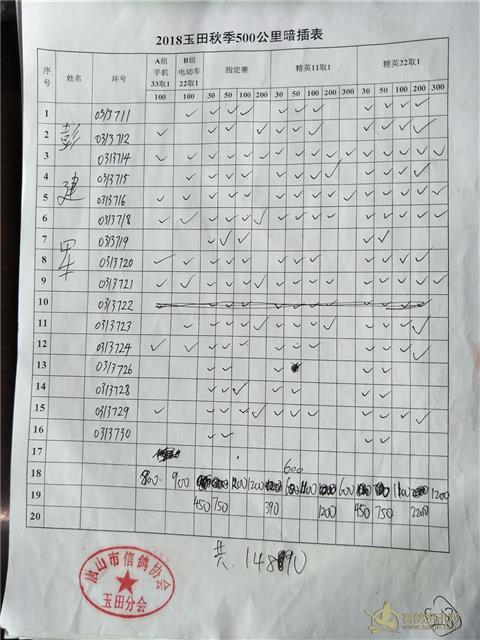 2018玉田秋季500公里暗插表
序号 姓名 环号 A组手机33取1 B组电动车22取1 指定赛 精英11取1 精英22取1
100 100 30 50 100 200 30 50 100 200 300 30 50 100 200 300
彭建军
1 0313711
2 0313712
3 0313714
4 0313715
5 0313716
6 0313718
7 0313719
8 0313720
9 0313721
10 0313722
11 0313723
12 0313724
13 0313726
14 0313728
15 0313729
16 0313730
17
600
18 800 900 1200 600 1100 1200
19 450 750 390 1200 450 750 2200
20
共 14890
唐山市信鸽协会
玉田分会